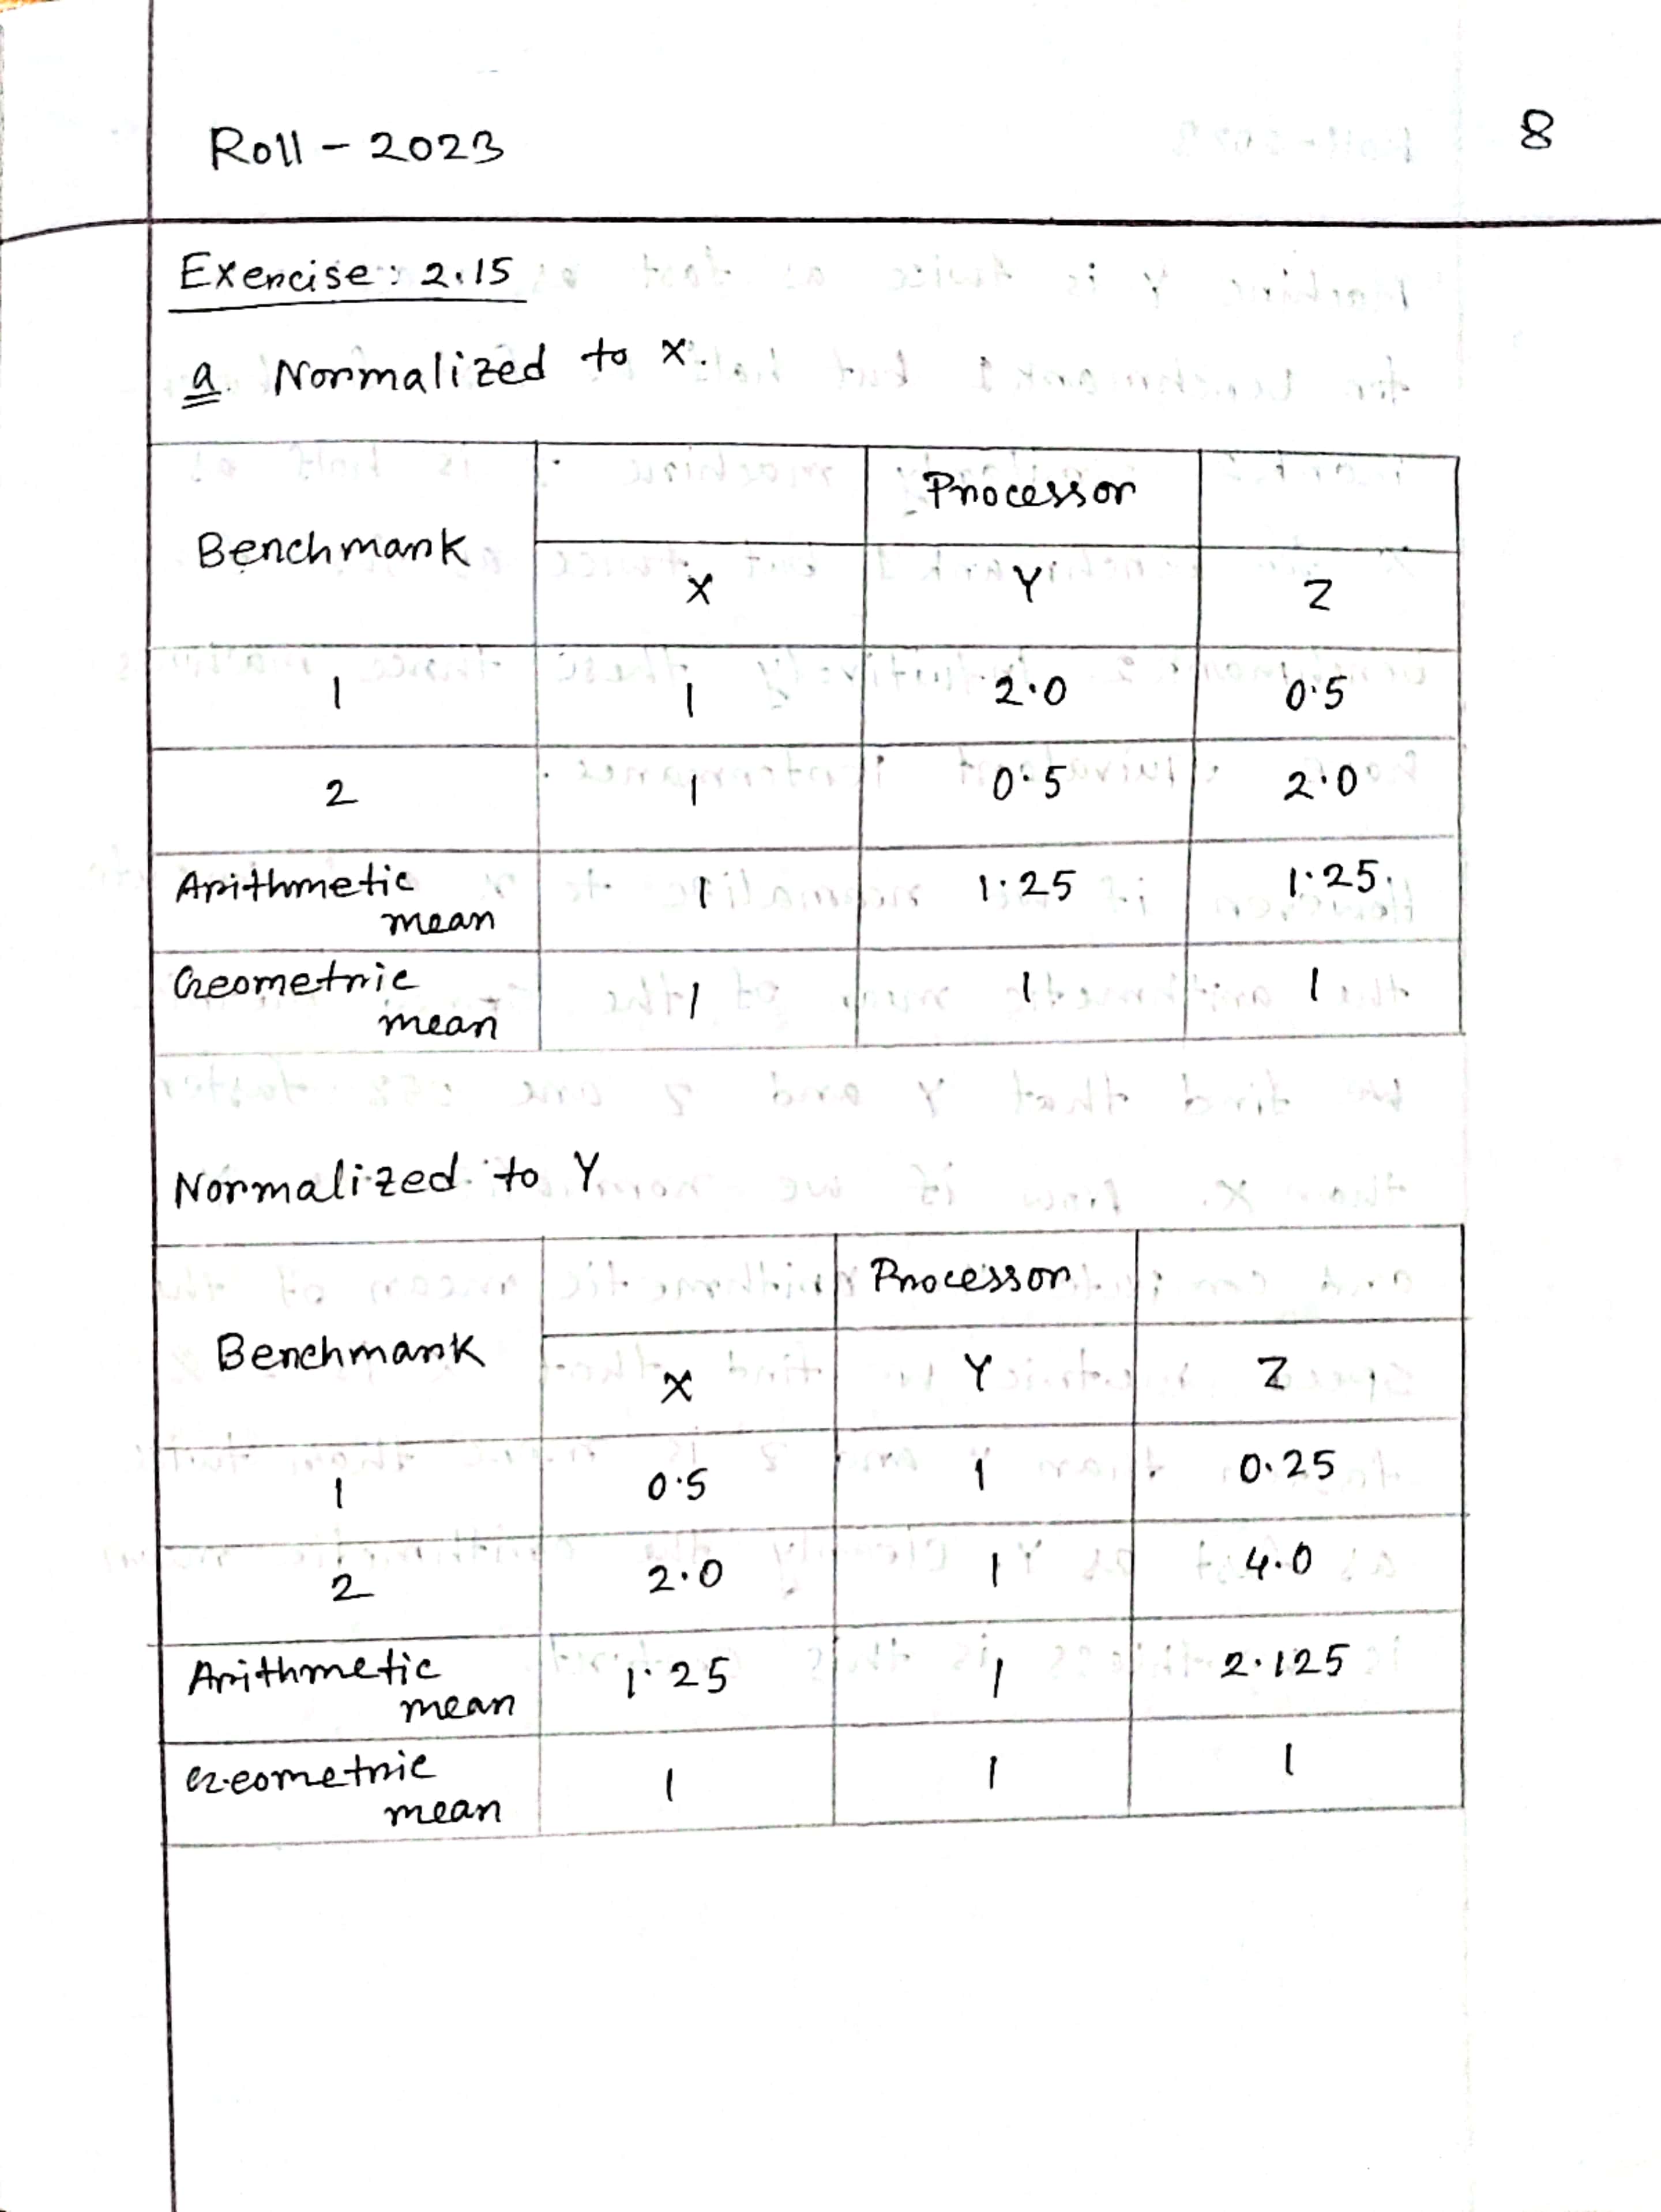 Roll - 2023
8
Exercise: 2.15
a. Normalized to X.
Benchmark
Processor
X Y Z
1 1 2.0 0.5
2 1 0.5 2.0
Arithmetic mean 1 1.25 1.25.
Geometric mean 1 1 1
Normalized to Y
Benchmark
Processor
X Y Z
1 0.5 1 0.25
2 2.0 1 4.0
Arithmetic mean 1.25 1 2.125
Geometric mean 1 1 1